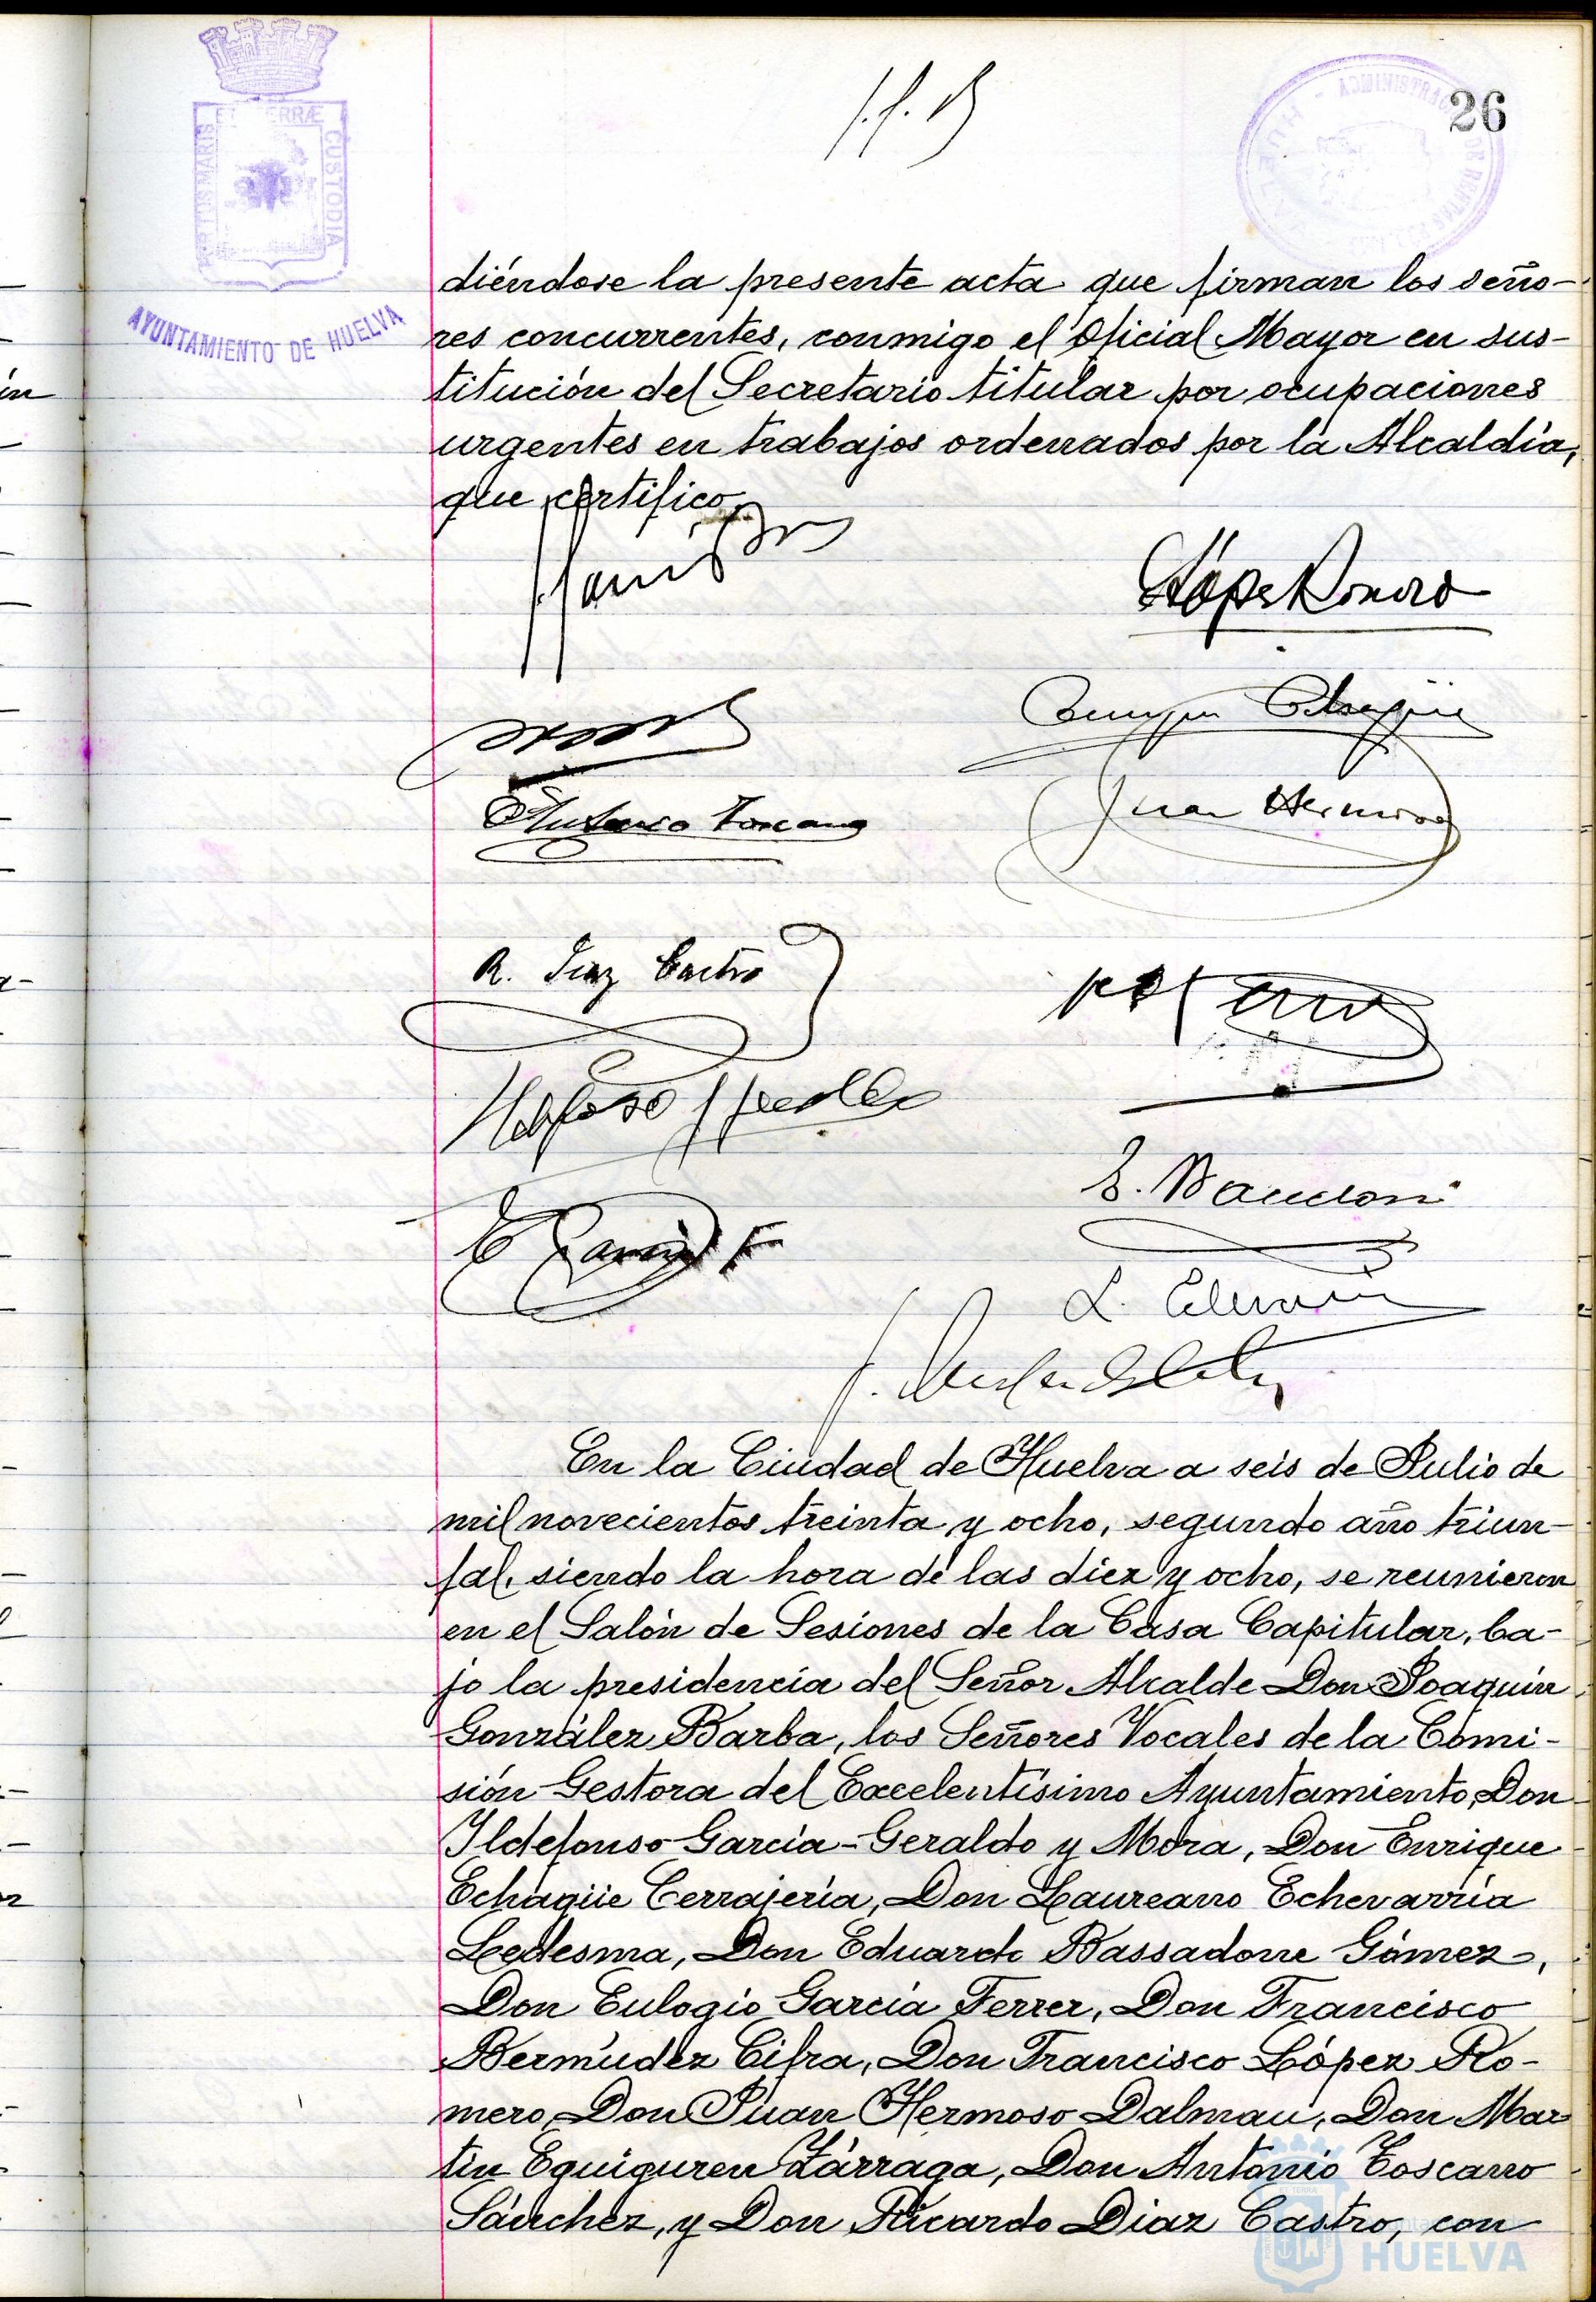 26
PORTUS MARIS ET TERRÆ CUSTODIA
AYUNTAMIENTO DE HUELVA
diéndose la presente acta que firman los seño-
res concurrentes, conmigo el Oficial Mayor en sus-
titución del Secretario titular por ocupaciones
urgentes en trabajos ordenados por la Alcaldía,
que certifico.
López Romero
Enrique Echagüe
Antonio Toscano
Juan Hermoso
R. Diaz Castro
E. García F
En la Ciudad de Huelva a seis de Julio de
mil novecientos treinta y ocho, segundo año triun-
fal, siendo la hora de las diez y ocho, se reunieron
en el Salón de Sesiones de la Casa Capitular, ba-
jo la presidencia del Señor Alcalde Don Joaquín
González Barba, los Señores Vocales de la Comi-
sión Gestora del Excelentísimo Ayuntamiento, Don
Ildefonso García-Geraldo y Mora, Don Enrique
Echagüe Cerrajería, Don Laureano Echevarría
Ledesma, Don Eduardo Bassadone Gómez,
Don Eulogio García Ferrer, Don Francisco
Bermúdez Cifra, Don Francisco López Ro-
mero, Don Juan Hermoso Dalmau, Don Mar
tín Eguiguren Zárraga, Don Antonio Toscano
Sánchez, y Don Ricardo Diaz Castro, con
HUELVA